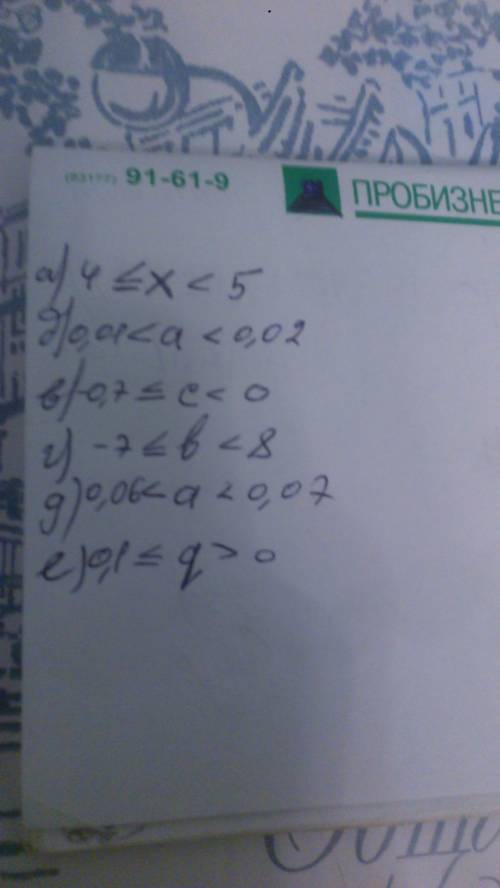 (83177) 91-61-9
ПРОБИЗНЕ
а) 4 ≤ x < 5
б) 0,01 < a < 0,02
в) -0,7 ≤ c < 0
г) -7 ≤ b < 8
д) 0,06 < a < 0,07
е) 0,1 ≤ q > 0